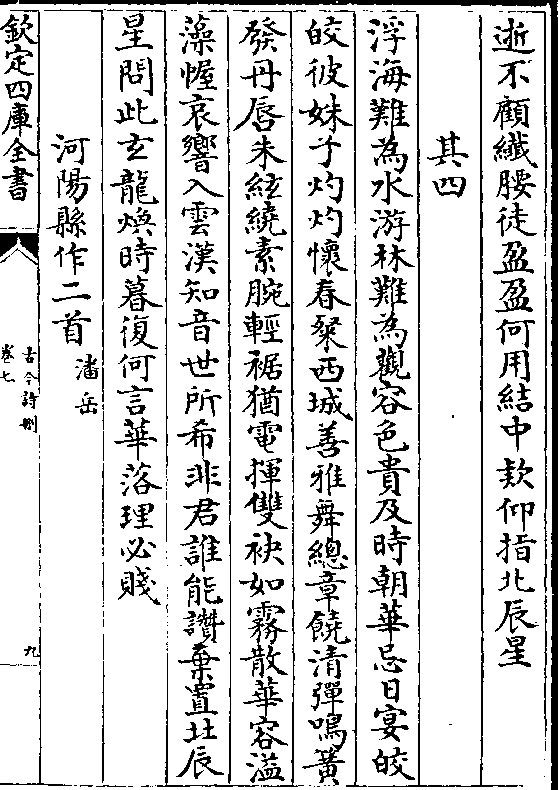 逝不顧纖腰徒盈盈何用結中欵仰指北辰星
其四
浮海難為水游林難為觀容色貴及時朝華忌日宴皎
皎彼姝子灼灼懷春粲西城善雅舞總章饒清彈鳴簧
發丹唇朱絃繞素腕輕裾猶電揮雙袂如霧散華容溢
藻幄哀響入雲漢知音世所希非君誰能讚棄置北辰
星問此玄龍煥時暮復何言華落理必賤
河陽縣作二首 潘岳
欽定四庫全書
古今詩刪
卷七
九